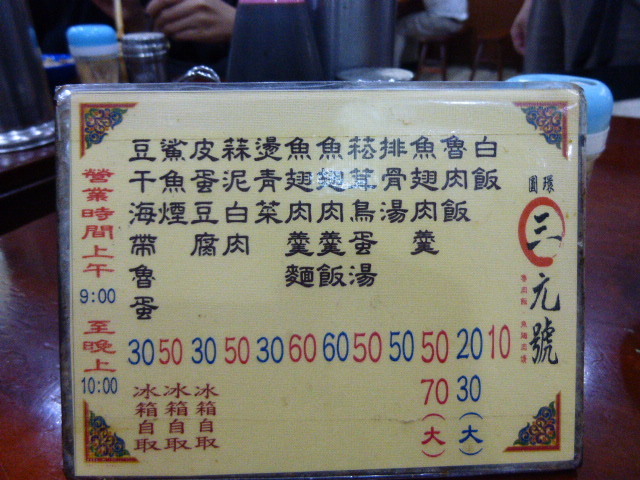 圓環
三元號
白飯 10
魯肉飯 20 30(大)
魚翅肉羹 50 70(大)
排骨湯 50
菘茸鳥蛋湯 50
魚翅肉羹飯 60
魚翅肉羹麵 60
燙青菜 30
蒜泥白肉 50
皮蛋豆腐 30 冰箱自取
鯊魚煙 50 冰箱自取
豆干海帶魯蛋 30 冰箱自取
營業時間上午9:00至晚上10:00